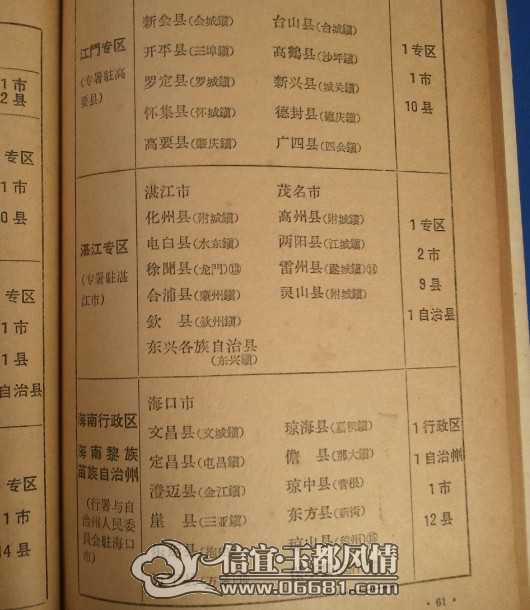 1市
2县
专区
1市
0县
专区
1市
1县
自治县
专区
1市
14县
江門专区
(专署駐高
要县)
新会县(会城鎭) 台山县(台城鎭)
开平县(三埠鎭) 高鶴县(沙坪鎭)
罗定县(罗城鎭) 新兴县(城关鎭)
怀集县(怀城鎭) 德封县(德庆鎭)
高要县(肇庆鎭) 广四县(四会鎭)
1专区
1市
10县
湛江专区
(专署駐湛
江市)
湛江市 茂名市
化州县(附城鎭) 高州县(附城鎭)
电白县(水东鎭) 两阳县(江城鎭)
徐聞县(龙門)⑬ 雷州县(雷城鎭)⑭
合浦县(廉州鎭) 灵山县(附城鎭)
欽 县(欽州鎭)
东兴各族自治县
(东兴鎭)
1专区
2市
9县
1自治县
海南行政区
海南黎族
苗族自治州
(行署与自
治州人民委
員会駐海口
市)
海口市
文昌县(文城鎭) 琼海县(嘉积鎭)
定昌县(屯昌鎭) 儋 县(那大鎭)
澄迈县(金江鎭) 琼中县(营根)
崖 县(三亚鎭) 东方县(新街)
琼山县
1行政区
1自治州
1市
12县
信宜玉都风情
www.06681.com
·61·